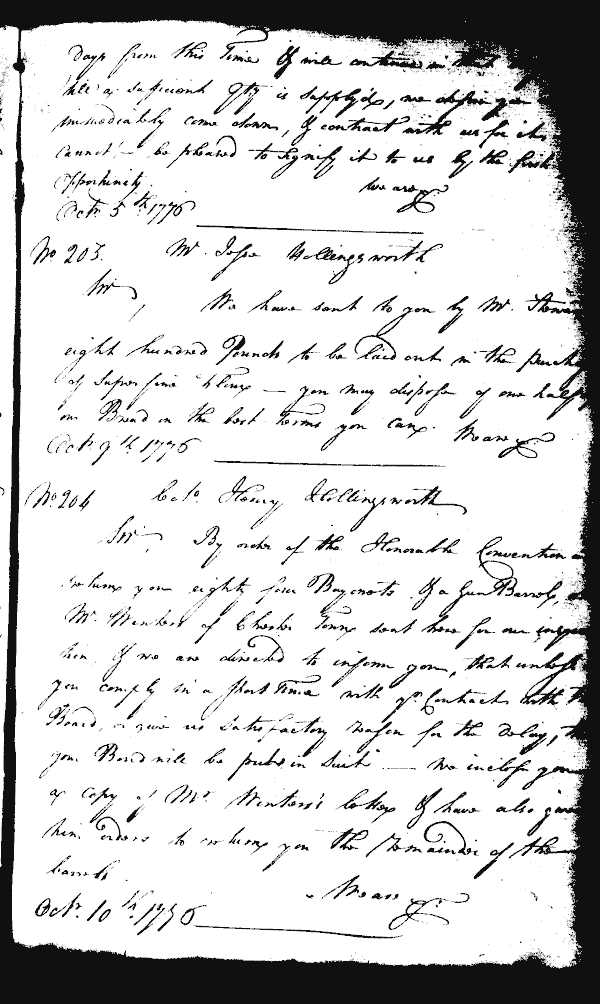 days from this Time & will continue in that
till a sufficient Qty is supply'd, we desire you
immediately come down, & contract with us for it
cannot — be pleased to signify it to us by the first
opportunity. We are &c
Octr. 5th 1776
No 203. Mr. Jesse Hollingsworth
Sir, We have sent to you by Mr. Steward
eight hundred Pounds to be laid out in the purchase
of Superfine Flour — you may dispose of one half
our Bread on the best Terms you can. We are &c
Octr. 9th 1776
No. 204 Colo. Henry Hollingsworth
Sir, By order of the Honorable Convention
return you eighty four Bayonets & a Gun Barrel,
Mr. Winters of Chester Town sent here for our
him & we are directed to inform you, that unless
you comply in a short Time with yr. Contract with
Board, or give us satisfactory reason for the delay,
your Bond will be put in Suit — we inclose you
a copy of Mr. Winters's letter & have also given
him orders to return you the remainder of the
barrels.
We are &c.
Octr. 10th. 1776